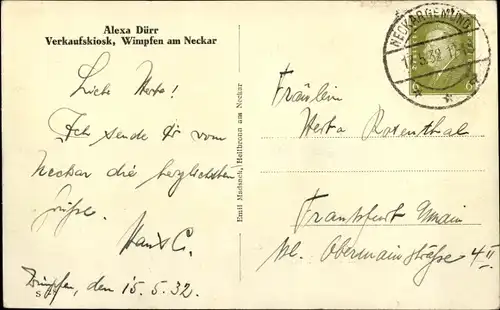 Alexa Dürr
Verkaufskiosk, Wimpfen am Neckar
Liebe Herta!
Ich sende Dir vom
Neckar die herzlichsten
Grüße.
Hans C.
Wimpfen, den 15.5.32.
Emil Madasch, Heilbronn am Neckar
NECKARGEMÜND
Fräulein
Herta Rosenthal
Frankfurt Main
Obermainstraße 4 II